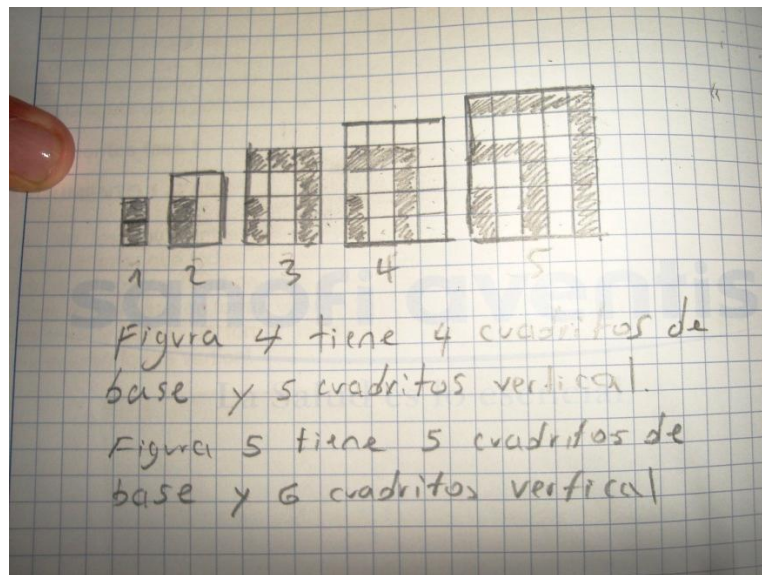 1 2 3 4 5
sanofi aventis
Figura 4 tiene 4 cuadritos de
base y 5 cuadritos vertical.
Figura 5 tiene 5 cuadritos de
base y 6 cuadritos vertical